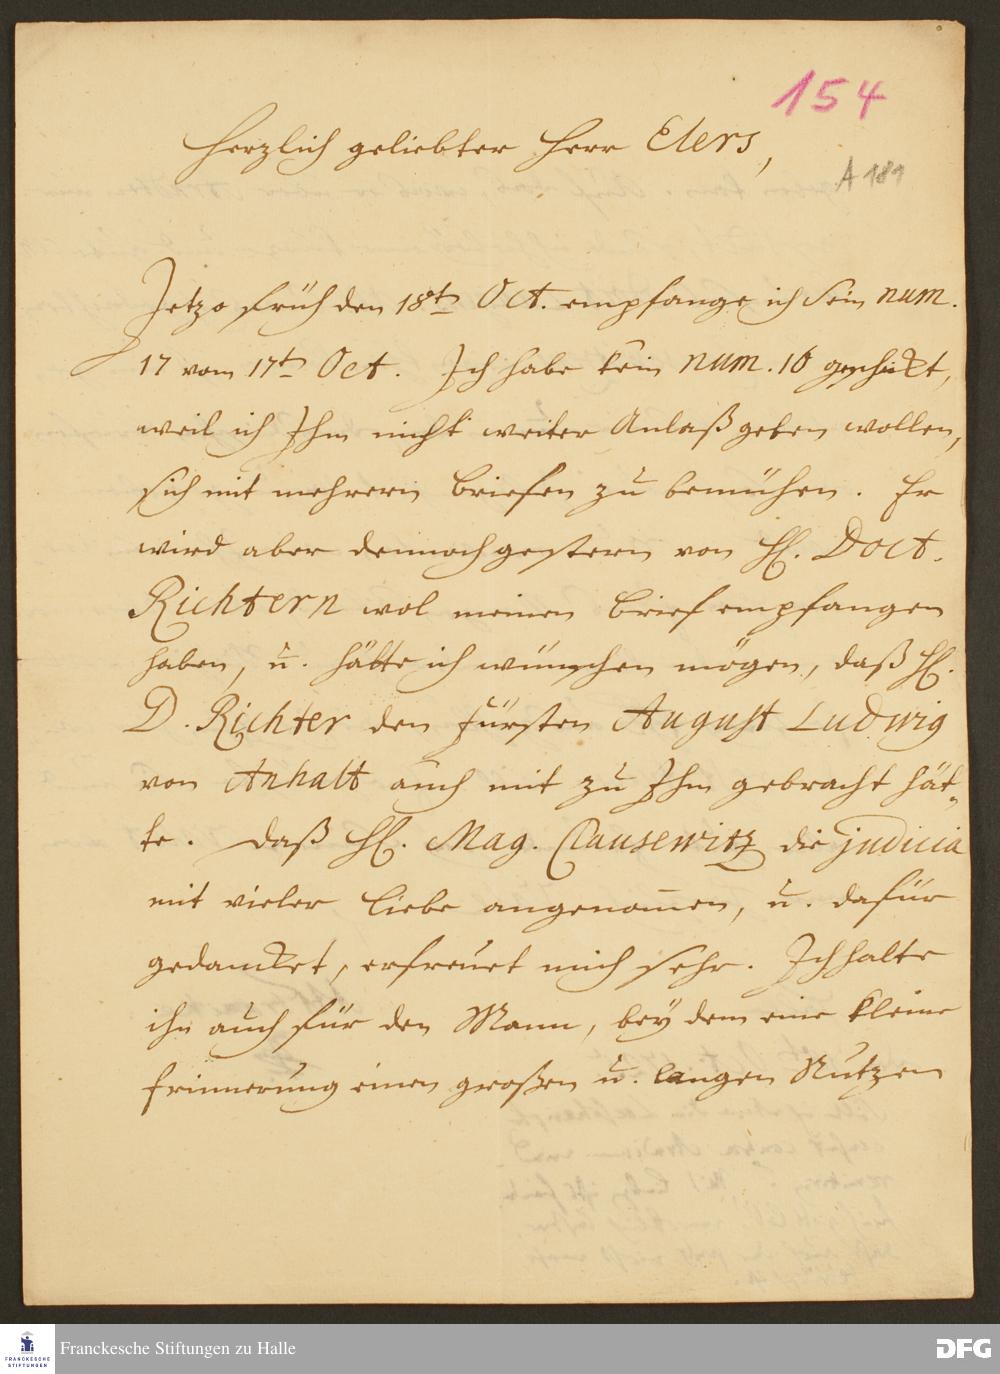 154
Herzlich geliebter Herr Elers,
A 181
Jetzo früh den 18t. Oct. empfange ich Sein num.
17 vom 17t. Oct. Ich habe kein num. 16 geschickt,
weil ich Ihm nicht weiter Anlaß geben wollen,
sich mit mehrern Briefen zu bemühen. Er
wird aber dennoch gestern von H. Doct.
Richtern wol meinen Brief empfangen
haben, u. hätte ich wünschen mögen, daß H.
D. Richter den Fürsten August Ludwig
von Anhalt auch mit zu Ihm gebracht hät-
te. Daß H. Mag. Clausewitz die judicia
mit vieler Liebe angenom̄en, u. dafür
gedancket, erfreuet mich sehr. Ich halte
ihn auch für den Mann, bey dem eine kleine
Erinnerung einen großen u. langen Nutzen
FRANCKESCHE STIFTUNGEN
Franckesche Stiftungen zu Halle
DFG